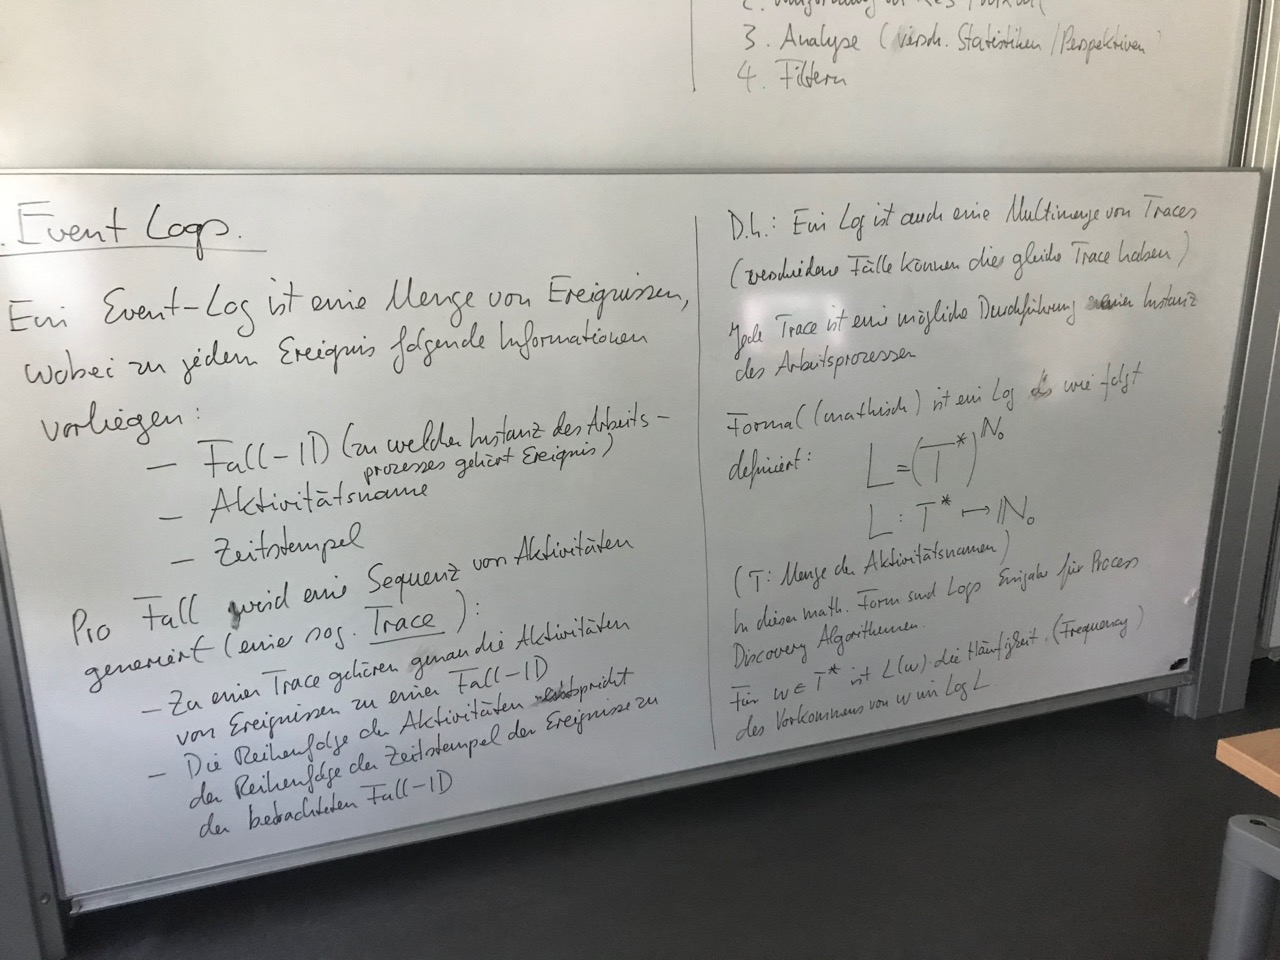 3. Analyse (versch. Statistiken / Perspektiven)
4. Filtern
. Event Logs.
Ein Event-Log ist eine Menge von Ereignissen,
wobei zu jedem Ereignis folgende Informationen
vorliegen:
— Fall-ID (zu welcher Instanz des Arbeits-
prozesses gehört Ereignis)
— Aktivitätsname
— Zeitstempel
Pro Fall wird eine Sequenz von Aktivitäten
generiert (einer sog. Trace):
— Zu einer Trace gehören genau die Aktivitäten
von Ereignissen zu einer Fall-ID
— Die Reihenfolge der Aktivitäten entspricht
der Reihenfolge der Zeitstempel der Ereignisse zu
der betrachteten Fall-ID
D.h.: Ein Log ist auch eine Multimenge von Traces
(verschiedene Fälle können die gleiche Trace haben)
Jede Trace ist eine mögliche Durchführung einer Instanz
des Arbeitsprozesses
Formal (mathisch) ist ein Log wie folgt
definiert: L = (T*)^ℕ₀
L : T* ↦ ℕ₀
(T: Menge der Aktivitätsnamen)
In dieser math. Form sind Logs Eingabe für Process
Discovery Algorithmen.
Für w ∈ T* ist L(w) die Häufigkeit (Frequency)
des Vorkommens von w im Log L